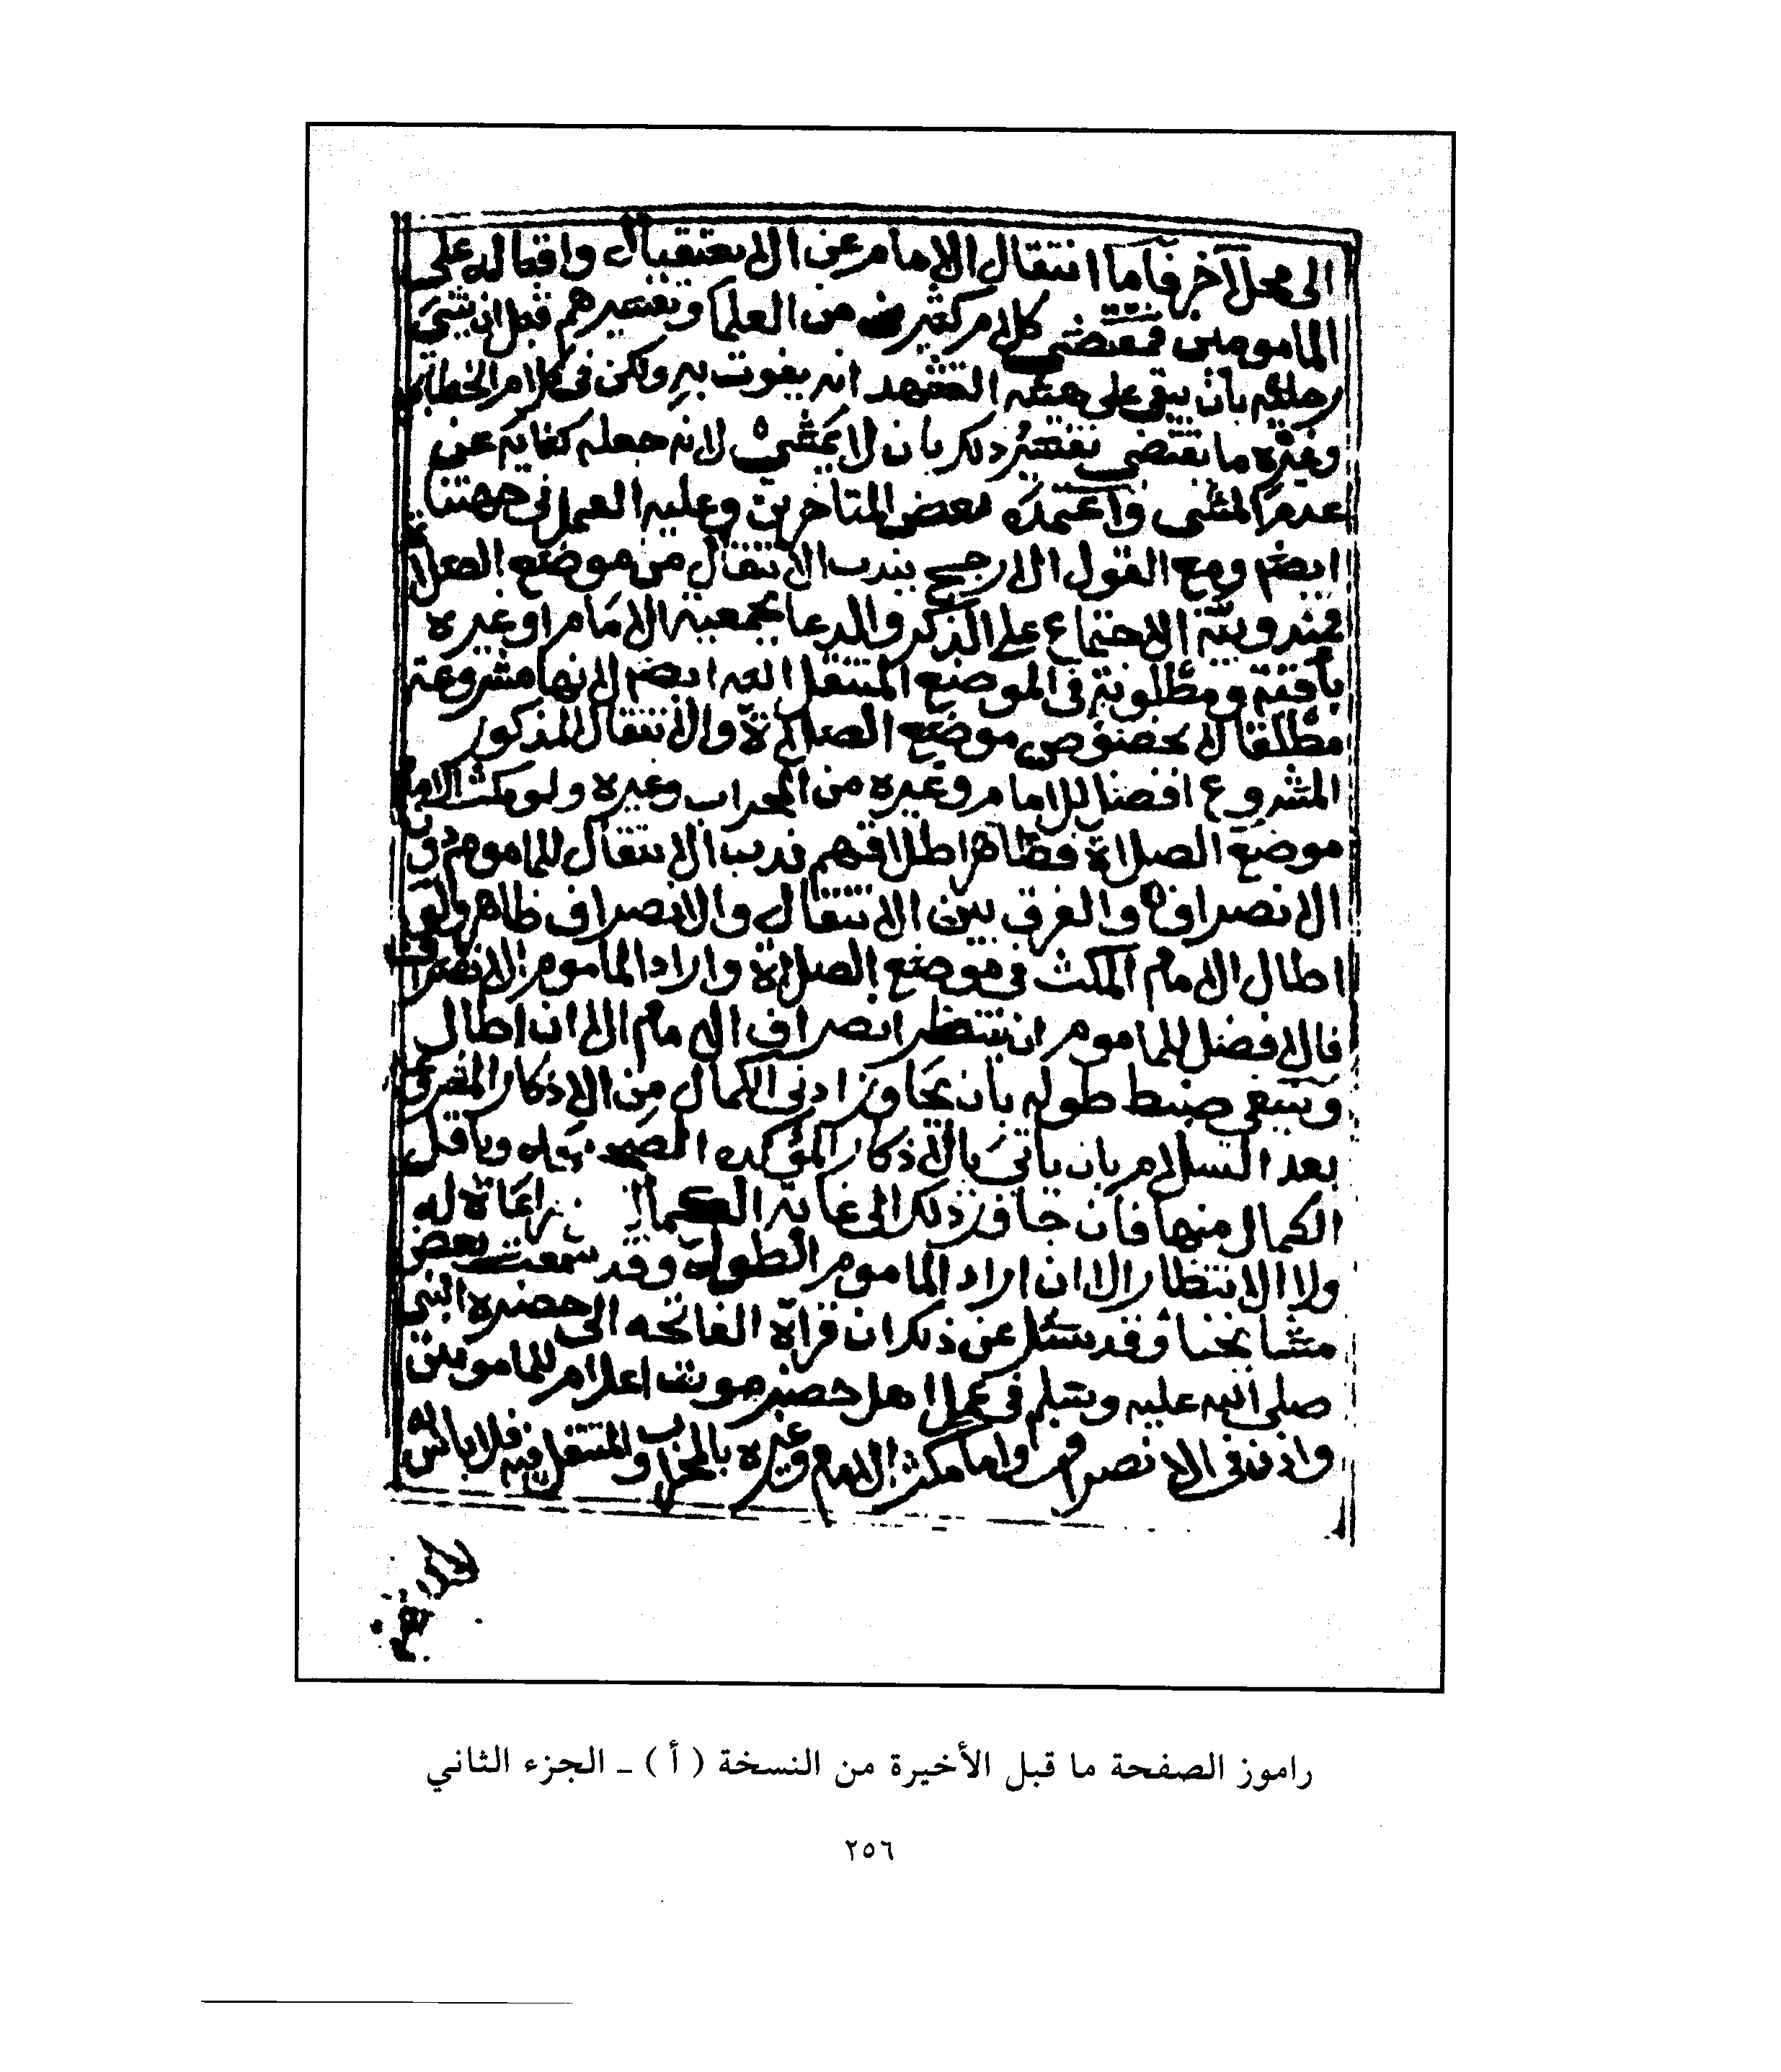 الى محل آخر فاما انتقال الامام عن الاستقبال واقباله على
المامومين فمقتضى كلام كثير من العلما وتفسيرهم قبل ان يثنى
رجليه بان يبقى على هيئه التشهد انه يفوت به ولكن فى كلام الخطابى
وغيره ما يقتضى تفسير ذلك بان لا يمشى لانه جعله كفايه عن
عدم المشى واعتمده بعض المتاخرين وعليه العمل فى جهتنا
ايضم ومع القول الارجح بندب الانتقال من موضع الصلاة
فمندوبية الاجتماع على الذكر والدعا بجمعية الامام او غيره
باقية ومطلوبة فى الموضع المنتقل اليه ايضم لانها مشروعة
مطلقا لا بخصوص موضع الصلاة والانتقال المذكور
المشروع افضل للامام وغيره من المحراب وغيره ولو مكث الامام
موضع الصلاة فظاهر اطلاقهم ندب الانتقال للماموم دون
الانصراف والفرق بين الانتقال والانصراف ظاهر ولو
اطال الامام المكث فى موضع الصلاة واراد الماموم الانصراف
فالافضل للماموم ان ينتظر انصراف الامام الا ان اطال
وينبغى ضبط طوله بان يجاوز ادنى الكمال من الاذكار المشروعة
بعد السلام بان ياتى بالاذكار المؤكده وباقل
الكمال منها فان جاوز ذلك الى غاية الكمال له
ولا الانتظار الا ان اراد الماموم الطول وقد سمعت بعض
مشايخنا وقد سئل عن ذلك ان قراة الفاتحه الى حضرة النبى
صلى الله عليه وسلم فى عمل اهل حضرموت اعلام للمامومين
واذن فى الانصراف واما مكث الامام وغيره بالمحراب والمنتقل فيه فلا باس
راموز الصفحة ما قبل الأخيرة من النسخة ( أ ) ـ الجزء الثاني
٢٥٦